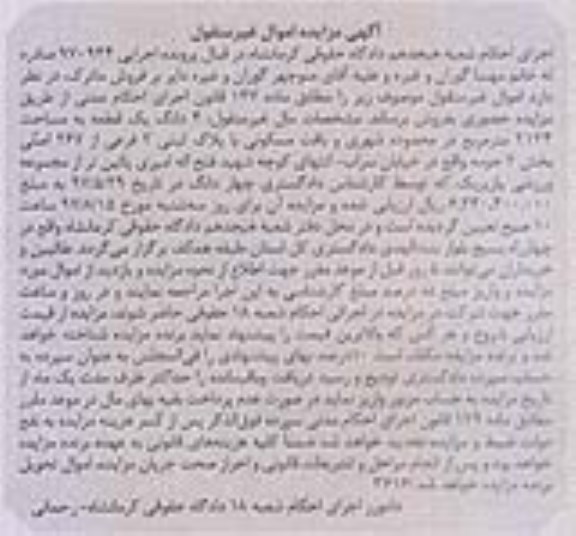 آگهی مزایده اموال غیرمنقول
اجرای احکام شعبه هیجدهم دادگاه حقوقی کرمانشاه در قبال پرونده اجرایی ۹۷۰۹۳۴ صادره
له خانم مهسا گوران و غیره و علیه آقای منوچهر گوران و غیره دایر بر فروش ماترک در نظر
دارد اموال غیرمنقول موصوف زیر را مطابق ماده ۱۳۷ قانون اجرای احکام مدنی از طریق
مزایده حضوری بفروش برساند مشخصات مال غیرمنقول: ۴ دانگ یک قطعه به مساحت
مترمربع در محدوده شهری و بافت مسکونی با پلاک ثبتی ۲ فرعی از ۲۶۷ اصلی
بخش ۲ حومه واقع در خیابان سراب- انتهای کوچه شهید فتح اله امیری پائین تر از مجموعه
ورزشی که توسط کارشناس دادگستری چهار دانگ در تاریخ ۹۷/۵/۲۹ به مبلغ
ریال ارزیابی شده و مزایده آن برای روز سه‌شنبه مورخ ۹۷/۸/۱۵ ساعت
۱۰ صبح تعیین گردیده است و در محل دفتر شعبه هیجدهم دادگاه حقوقی کرمانشاه واقع در
چهارراه بسیج بلوار دادگستری کل استان طبقه همکف برگزار می‌گردد. طالبین و
خریداران می‌توانند ۵ روز قبل از موعد مقرر جهت اطلاع از نحوه مزایده و بازدید از اموال مورد
مزایده و واریز مبلغ ۱۰ درصد مبلغ کارشناسی به این اجرا مراجعه نمایند و در روز و ساعت
مقرر جهت شرکت در مزایده در اجرای احکام شعبه ۱۸ حقوقی حاضر شوند. مزایده از قیمت
ارزیابی شروع و هر کس که بالاترین قیمت را پیشنهاد نماید برنده مزایده شناخته خواهد
شد و برنده مزایده مکلف است ۱۰درصد بهای پیشنهادی را فی‌المجلس به عنوان سپرده به
حساب سپرده دادگستری تودیع و رسید دریافت و باقیمانده را حداکثر ظرف مدت یک ماه از
تاریخ مزایده به حساب مزبور واریز نماید در صورت عدم پرداخت بقیه بهای مال در موعد مقرر
مطابق ماده ۱۲۹ قانون اجرای احکام مدنی سپرده فوق‌الذکر پس از کسر هزینه مزایده به نفع
دولت ضبط و مزایده تجدید خواهد شد ضمنا کلیه هزینه‌های قانونی به عهده برنده مزایده
خواهد بود و پس از انجام مراحل و تشریفات قانونی و احراز صحت جریان مزایده، اموال تحویل
برنده مزایده خواهد شد.
دادورز اجرای احکام شعبه ۱۸ دادگاه حقوقی کرمانشاه- رحمانی